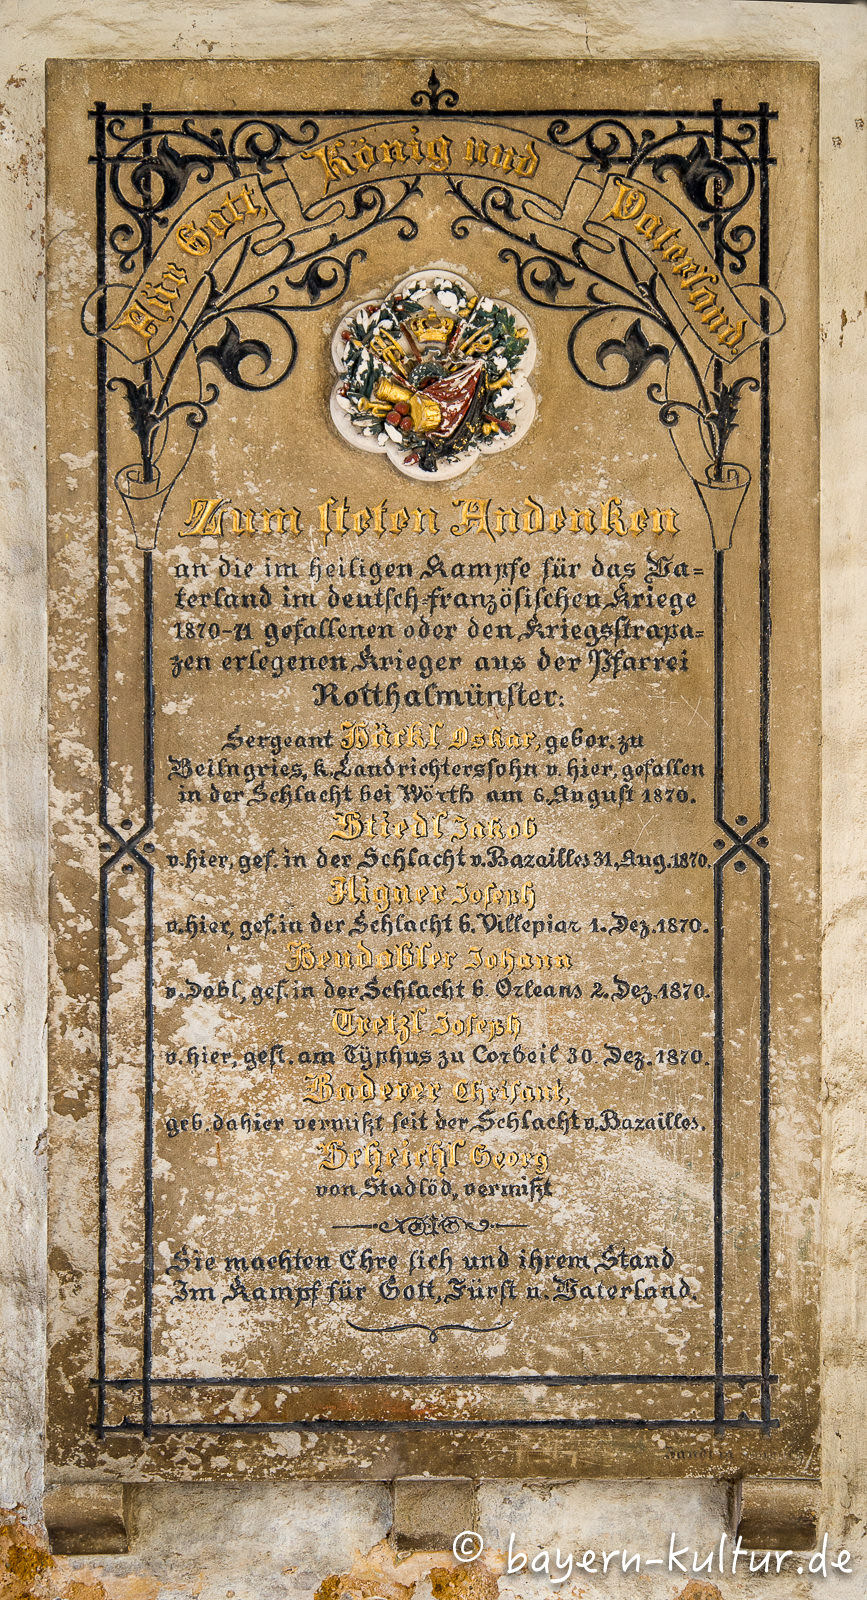 Für Gott, König und Vaterland.
Zum steten Andenken
an die im heiligen Kampfe für das Va=
terland im deutsch-französischen Kriege
1870-71 gefallenen oder den Kriegsstrapa=
zen erlegenen Krieger aus der Pfarrei
Rotthalmünster:
Sergeant Hückl Oskar, gebor. zu
Beilngries, k. Landrichterssohn v. hier, gefallen
in der Schlacht bei Wörth am 6. August 1870.
Stiedl Jakob
v. hier, gef. in der Schlacht v. Bazailles 31. Aug. 1870.
Aigner Joseph
v. hier, gef. in der Schlacht b. Villepiar 1. Dez. 1870.
Hendobler Johann
v. Dobl, gef. in der Schlacht b Orleans 2. Dez. 1870.
Tretzl Joseph
v. hier, gest. am Typhus zu Corbeil 30. Dez. 1870.
Baderer Chrisant,
geb. dahier vermißt seit der Schlacht v. Bazailles.
Scheichl Georg
von Stadlöd, vermißt
Sie machten Ehre sich und ihrem Stand
Im Kampf für Gott, Fürst u. Vaterland.
© bayern-kultur.de